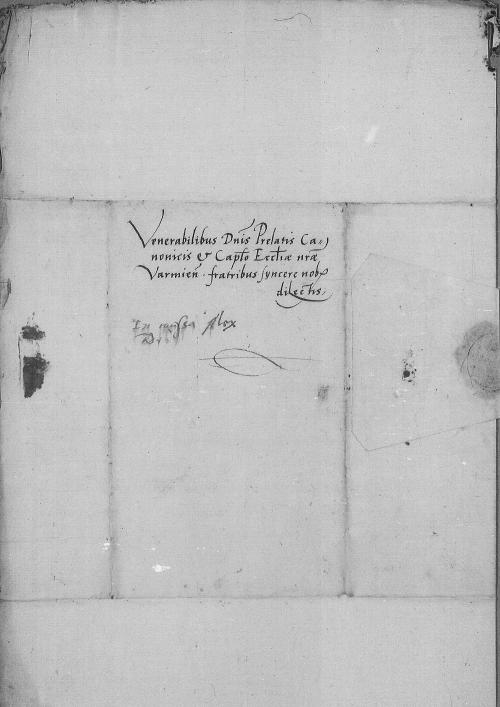 Venerabilibus Dnis Prelatis Ca-
nonicis & Capto Eccliæ nræ
Varmien. fratribus syncere nob
dilectis.